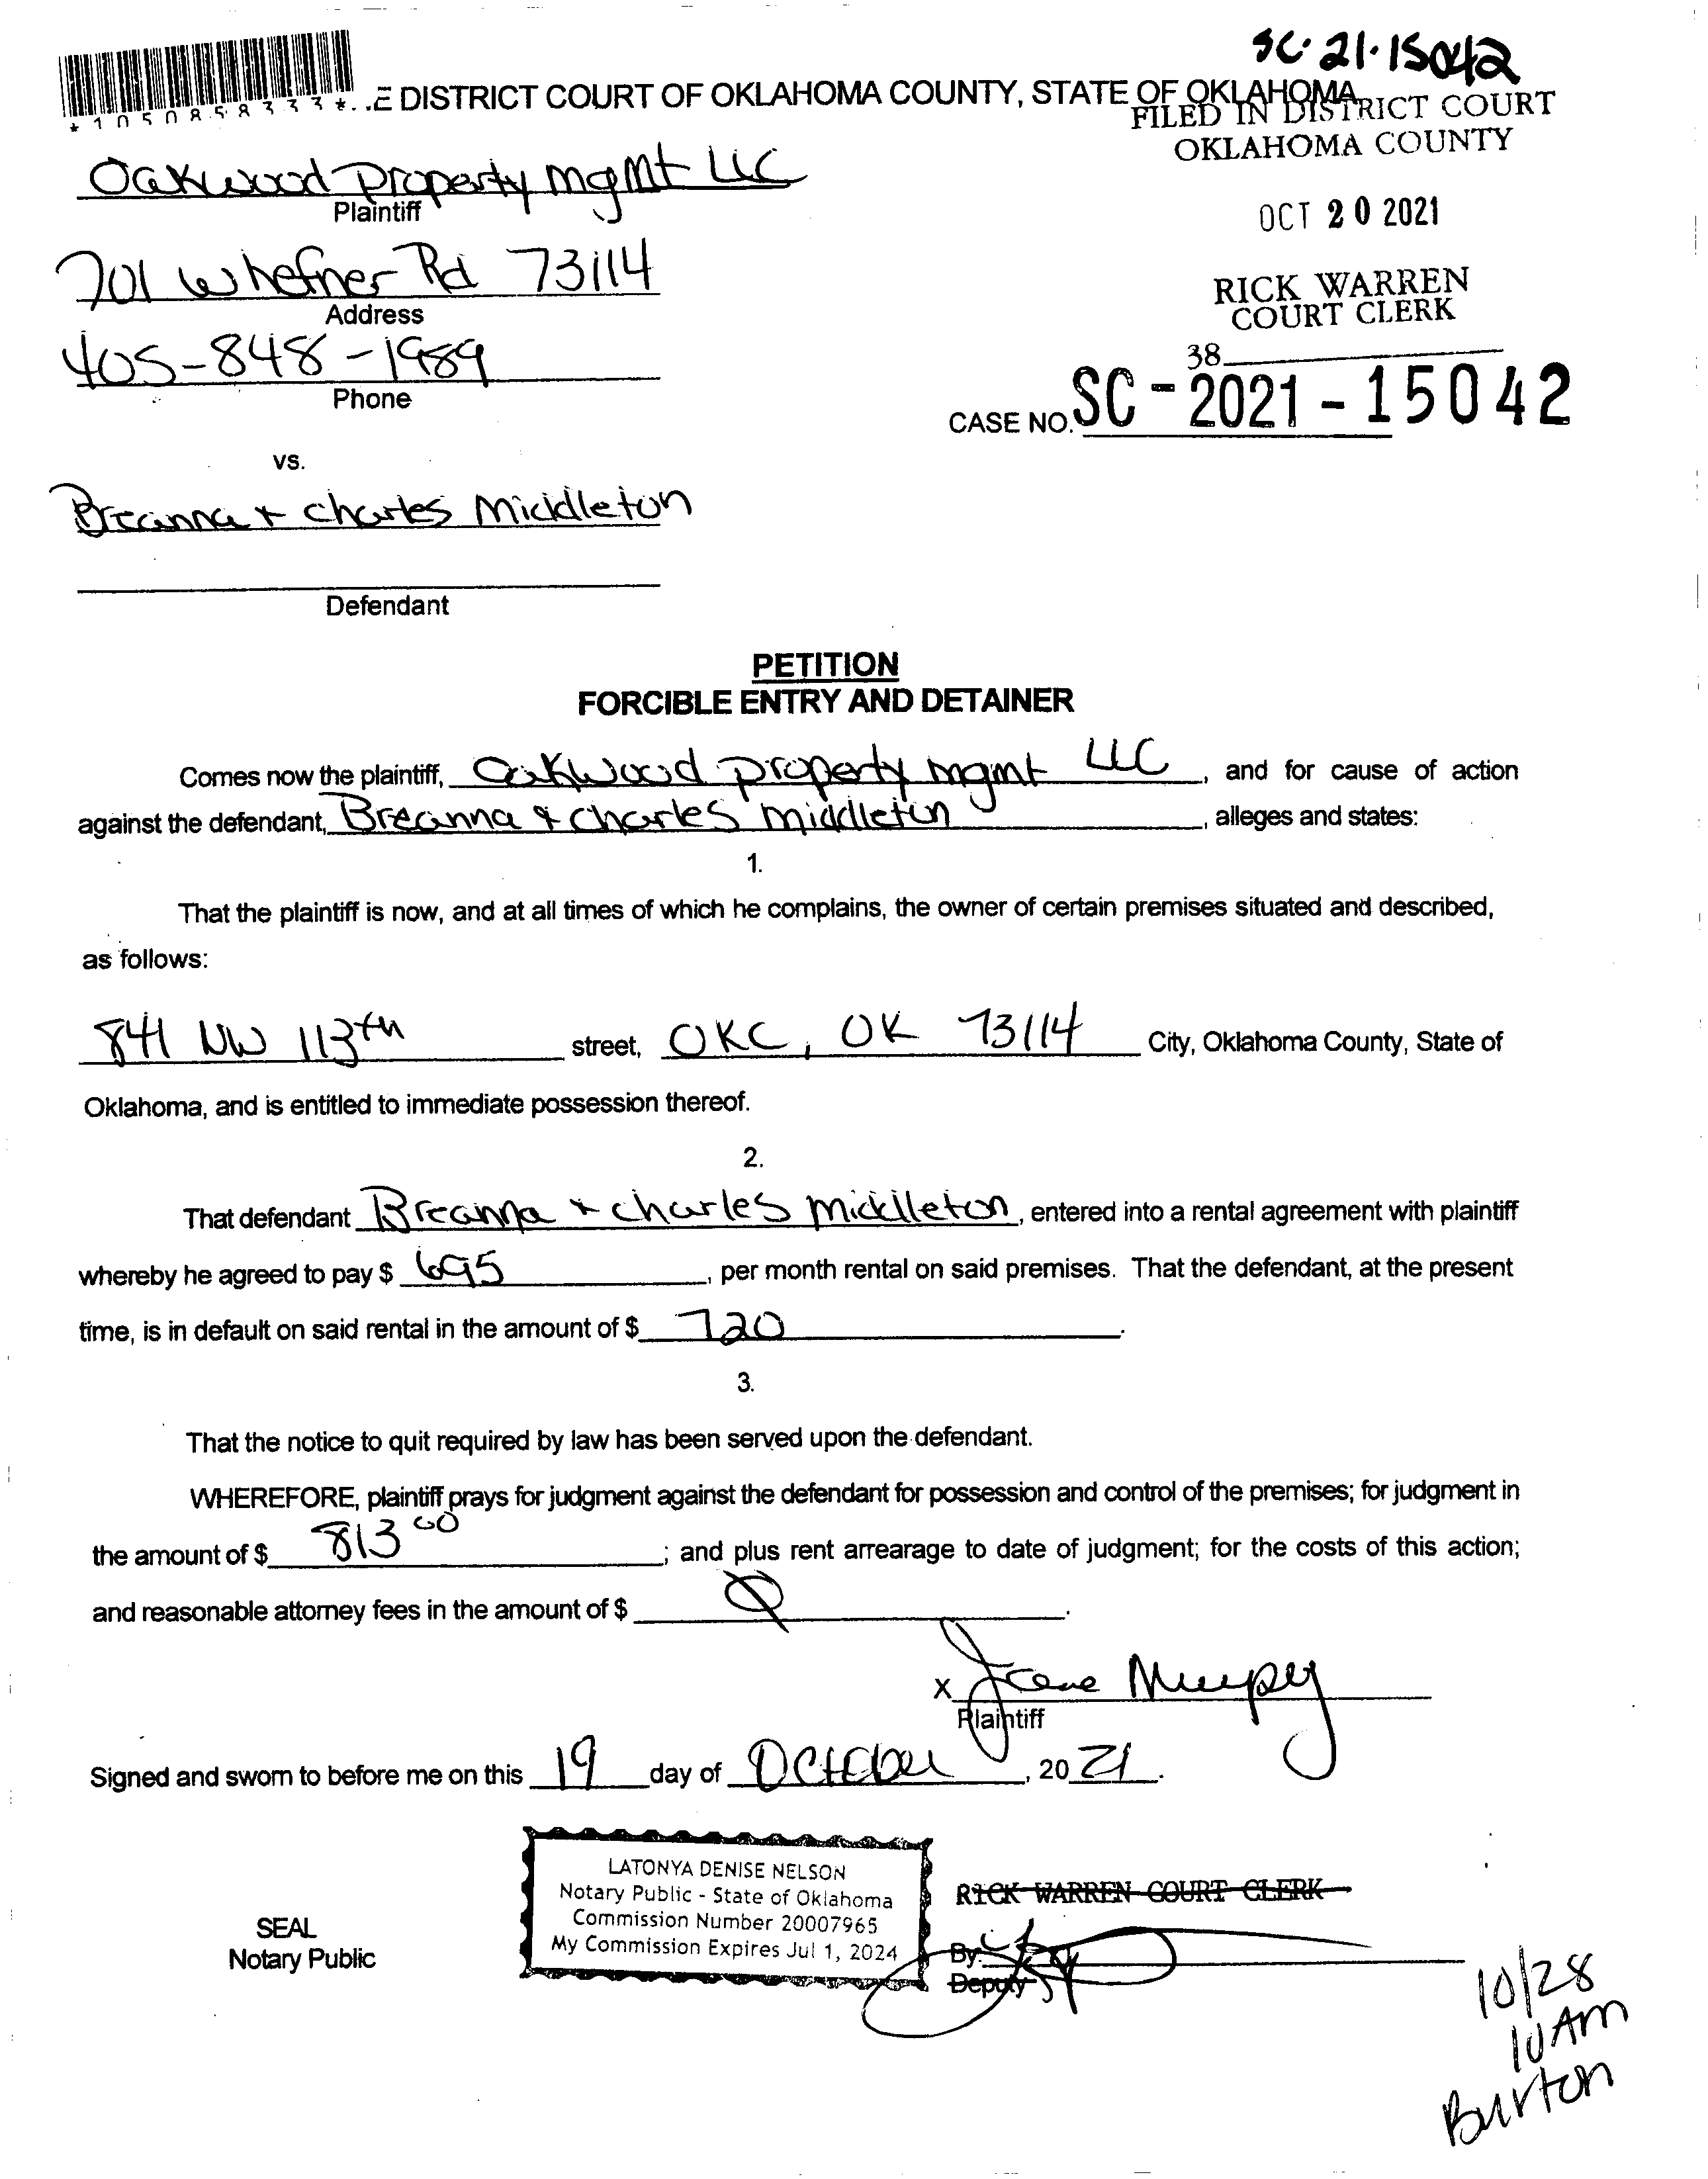 SC-21-15042
*1050858333*
..E DISTRICT COURT OF OKLAHOMA COUNTY, STATE OF OKLAHOMA
FILED IN DISTRICT COURT
OKLAHOMA COUNTY
OCT 20 2021
RICK WARREN
COURT CLERK
38
Oakwood Property mgmt LLC
Plaintiff
701 W hefner Rd 73114
Address
405-848-1989
Phone
CASE NO. SC-2021-15042
vs.
Breanna + charles Middleton
Defendant
PETITION
FORCIBLE ENTRY AND DETAINER
Comes now the plaintiff, Oakwood property mgmt LLC, and for cause of action
against the defendant, Breanna & charles middleton, alleges and states:
1.
That the plaintiff is now, and at all times of which he complains, the owner of certain premises situated and described,
as follows:
841 NW 113th street, OKC, OK 73114 City, Oklahoma County, State of
Oklahoma, and is entitled to immediate possession thereof.
2.
That defendant Breanna + charles middleton, entered into a rental agreement with plaintiff
whereby he agreed to pay $ 695, per month rental on said premises. That the defendant, at the present
time, is in default on said rental in the amount of $ 720.
3.
That the notice to quit required by law has been served upon the defendant.
WHEREFORE, plaintiff prays for judgment against the defendant for possession and control of the premises; for judgment in
the amount of $ 813 00; and plus rent arrearage to date of judgment; for the costs of this action;
and reasonable attorney fees in the amount of $ Ø.
X
Plaintiff
Signed and sworn to before me on this 19 day of October, 2021.
LATONYA DENISE NELSON
Notary Public - State of Oklahoma
Commission Number 20007965
My Commission Expires Jul 1, 2024
SEAL
Notary Public
RICK WARREN COURT CLERK
By:
Deputy
10/28
10 Am
Burton